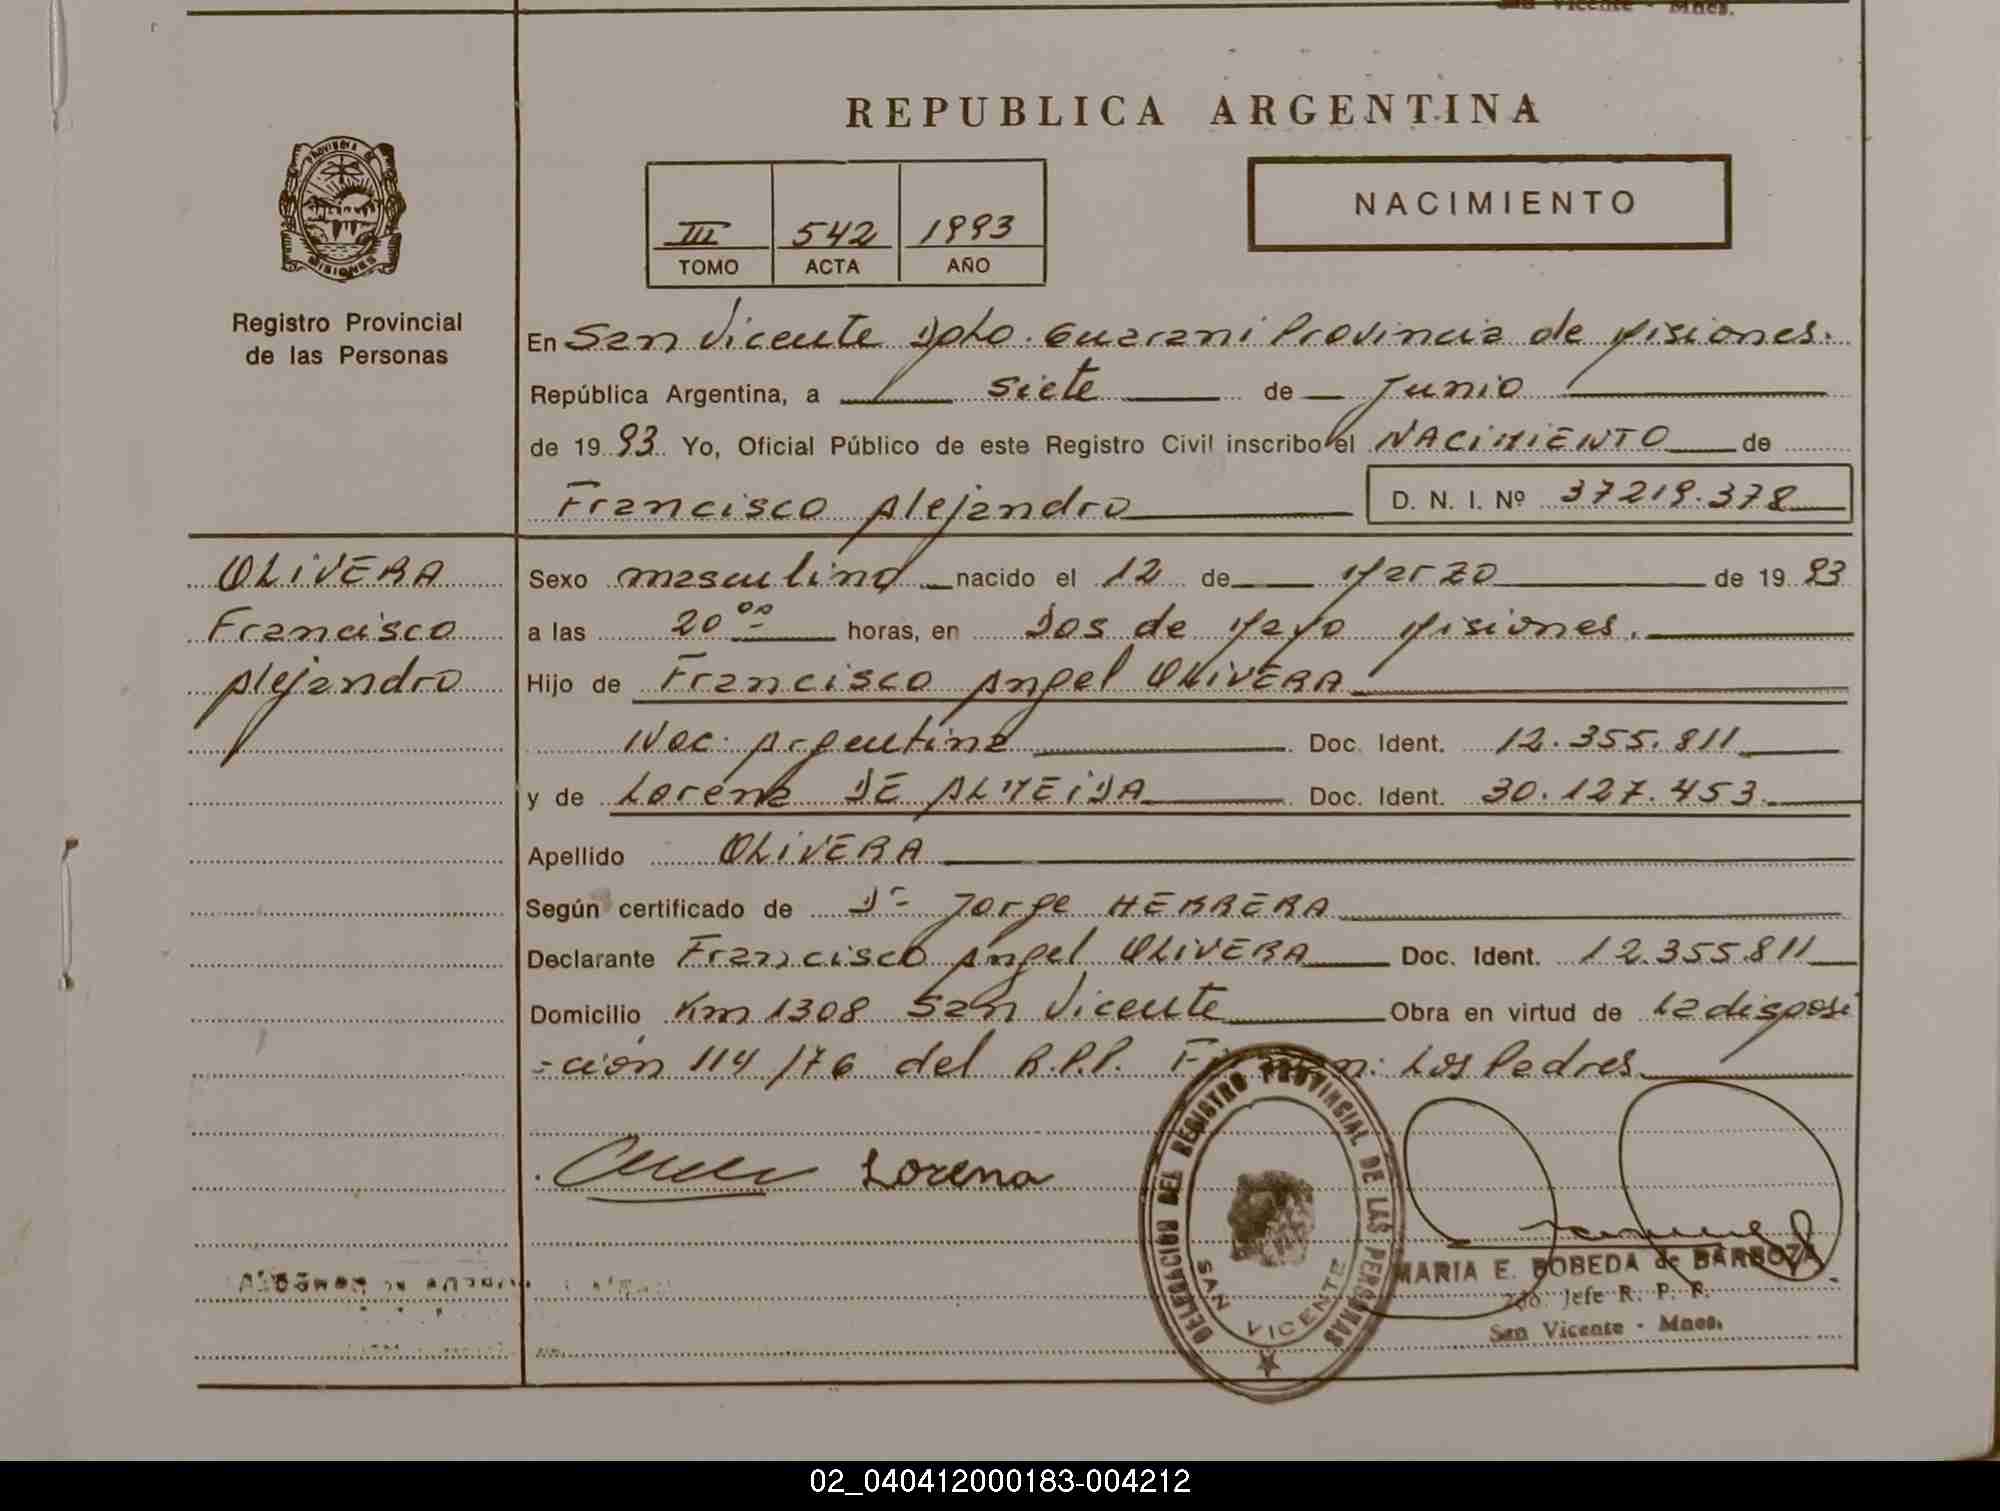 San Vicente - Mnes.
REPUBLICA ARGENTINA
PROVINCIA DE
MISIONES
NACIMIENTO
III 542 1993
TOMO ACTA AÑO
Registro Provincial
de las Personas
En San Vicente Dpto. Guarani Provincia de Misiones.
República Argentina, a siete de Junio
de 1993 Yo, Oficial Público de este Registro Civil inscribo el NACIMIENTO de
Francisco Alejandro D. N. I. Nº 37219.378
OLIVERA
Francisco
Alejandro
Sexo masculino nacido el 12 de Marzo de 1993
a las 20 00 horas, en Dos de Mayo Misiones.
Hijo de Francisco Angel OLIVERA
Nac. Argentina Doc. Ident. 12.355.811
y de Lorena DE ALMEIDA Doc. Ident. 30.127.453
Apellido OLIVERA
Según certificado de Dr Jorge HERRERA
Declarante Francisco Angel OLIVERA Doc. Ident. 12.355.811
Domicilio Km 1308 San Vicente Obra en virtud de la disposi
-ción 114/76 del R.P.P. Firman: Los Padres
Lorena
DELEGACION DEL REGISTRO PROVINCIAL DE LAS PERSONAS
SAN VICENTE
MARIA E. BOBEDA de BARBOZA
2do. Jefe R. P. P.
San Vicente - Mnes.
02_040412000183-004212